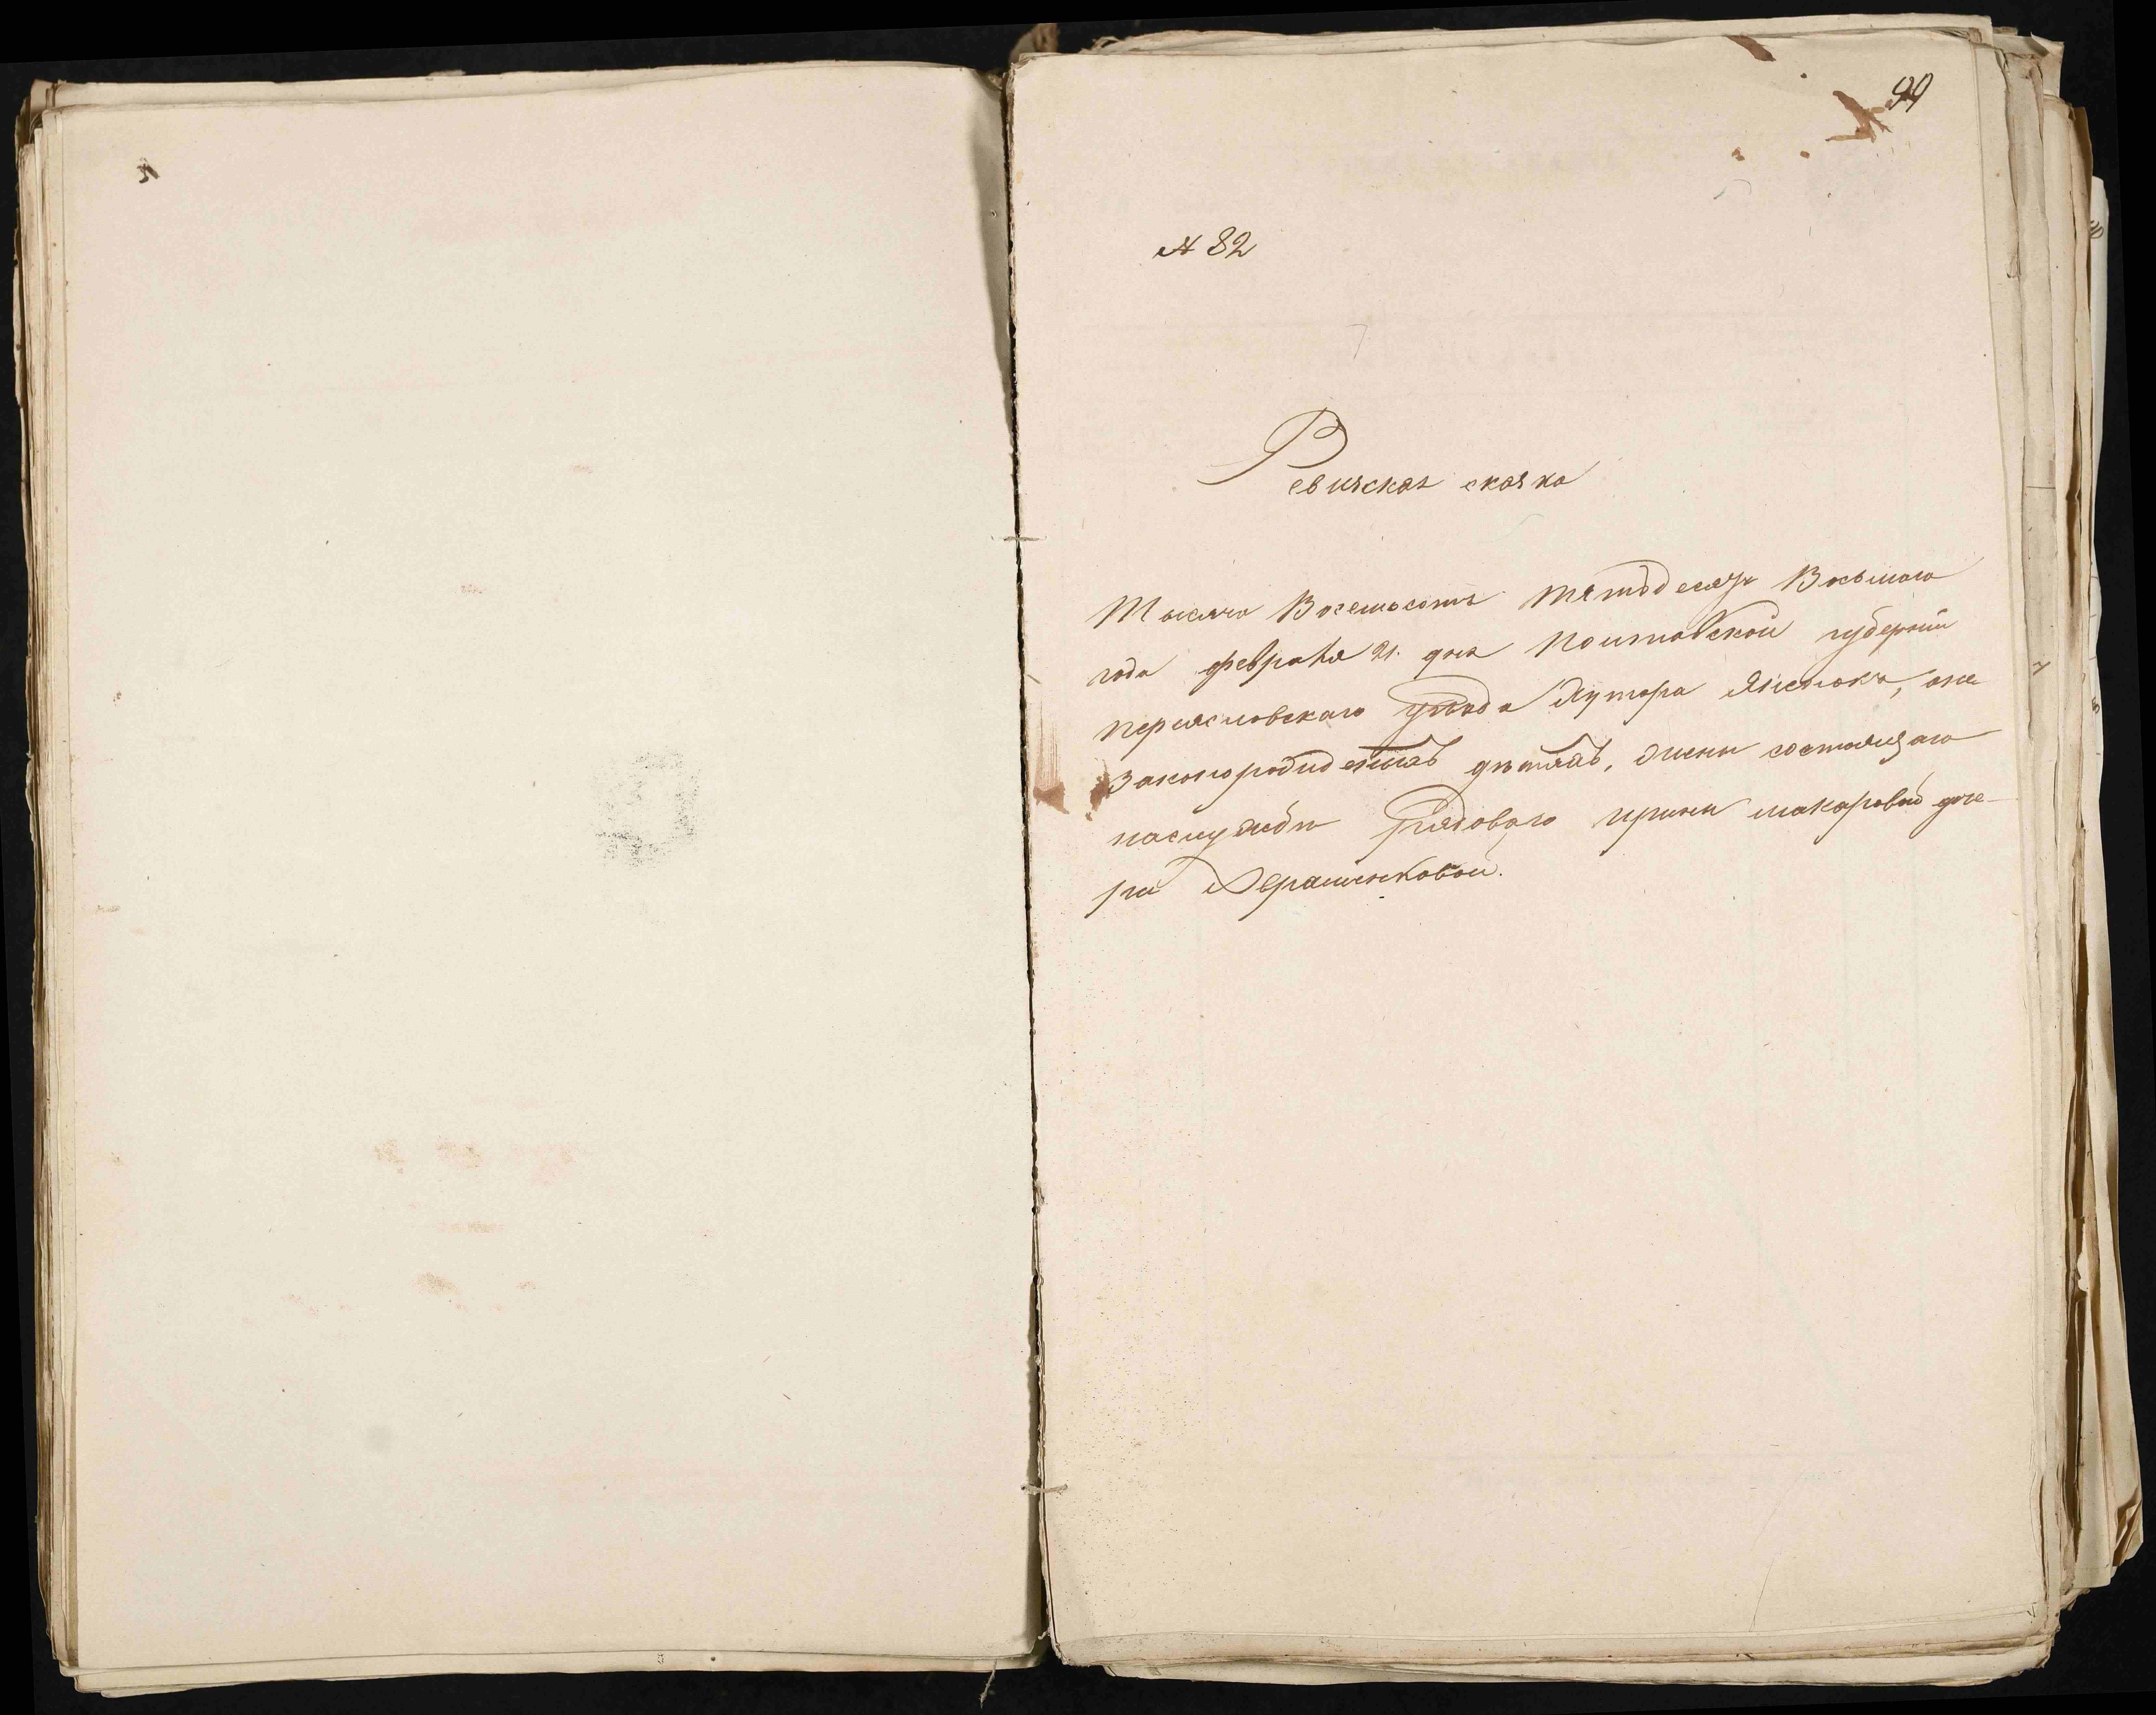 99
№ 82
Ревизская сказка
Тысяча Восемьсотъ пятьдесятъ Восьмаго
года февраля 21. дня Полтавской губерніи
переясловскаго уѣзда Хутора, оне
законорожденныхъ дѣтяхъ, жены состоящаго
наслужбѣ рядоваго ирины макаровой доче-
ри